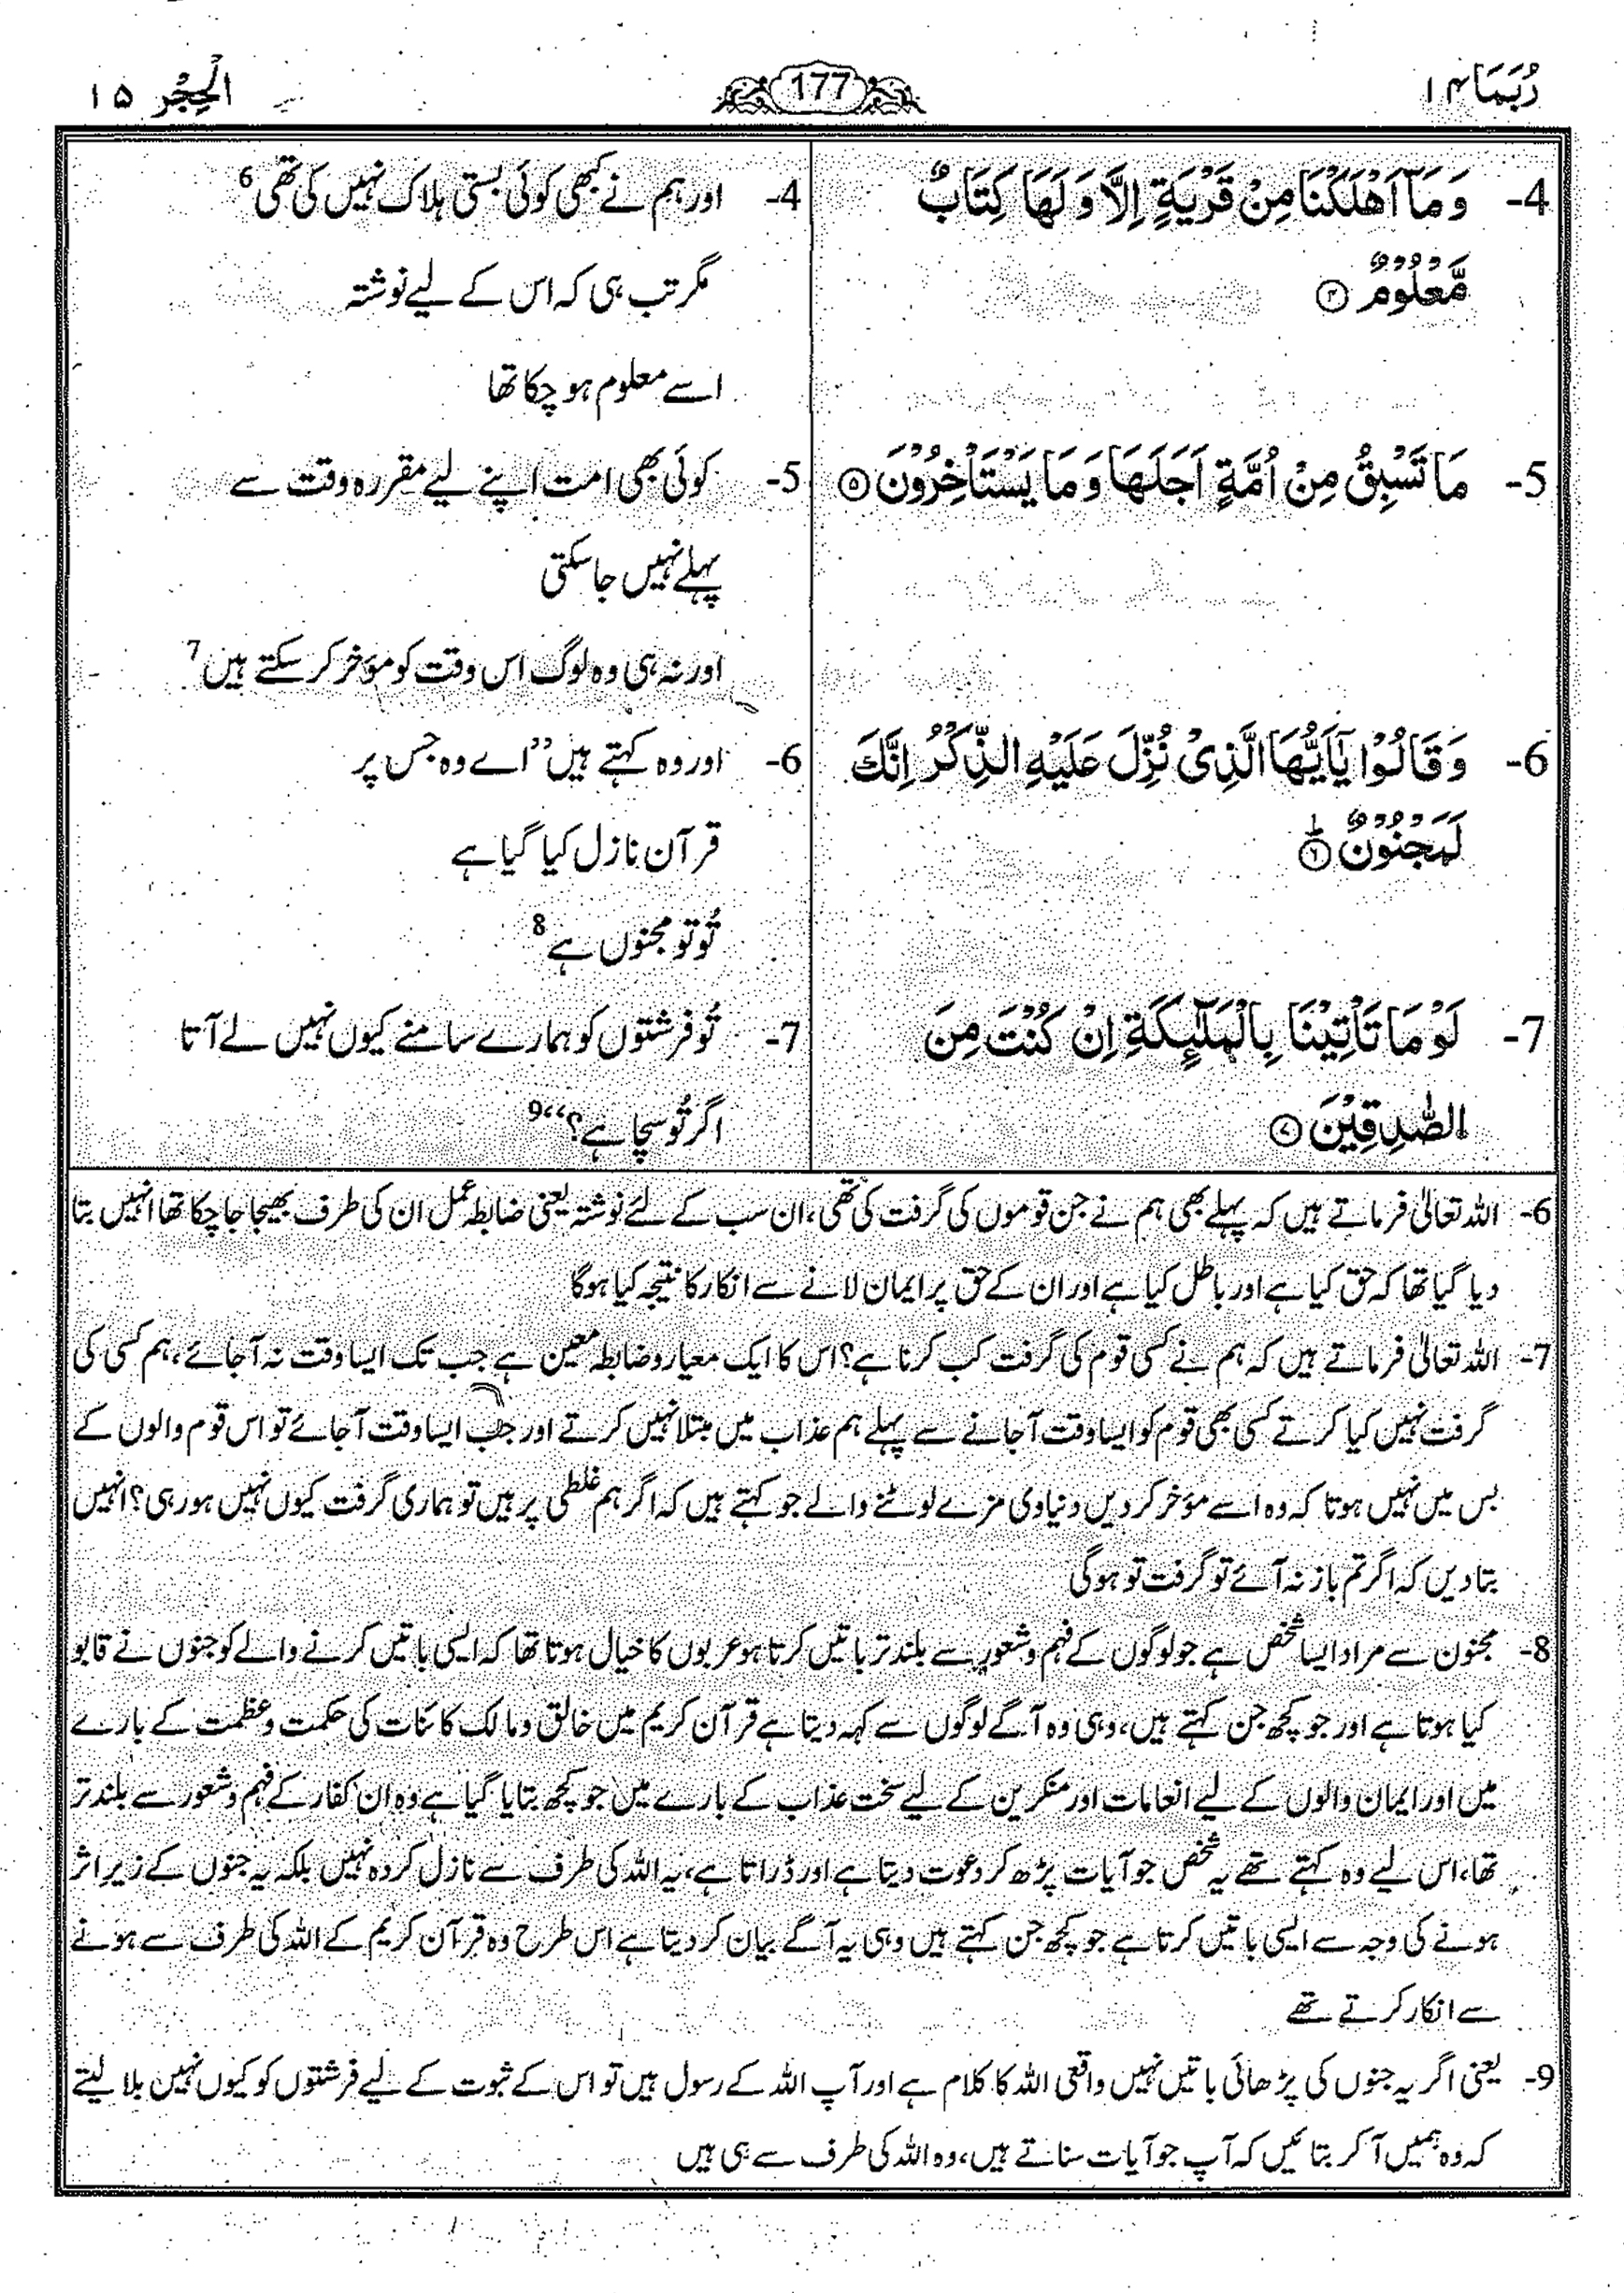 رُبَمَا ۱۴
177
الْحِجْر ۱۵
4- وَمَآ اَهْلَكْنَا مِنْ قَرْيَةٍ اِلَّا وَلَهَا كِتَابٌ
مَّعْلُوْمٌ ۴
4- اور ہم نے کبھی کوئی بستی ہلاک نہیں کی تھی 6
مگر تب ہی کہ اس کے لیے نوشتہ
اسے معلوم ہو چکا تھا
5- مَا تَسْبِقُ مِنْ اُمَّةٍ اَجَلَهَا وَمَا يَسْتَاْخِرُوْنَ ۵
5- کوئی بھی امت اپنے لیے مقررہ وقت سے
پہلے نہیں جا سکتی
اور نہ ہی وہ لوگ اس وقت کو مؤخر کر سکتے ہیں 7
6- وَقَالُوْا يٰٓاَيُّهَا الَّذِىْ نُزِّلَ عَلَيْهِ الذِّكْرُ اِنَّكَ
لَمَجْنُوْنٌ ۶ؕ
6- اور وہ کہتے ہیں ’’اے وہ جس پر
قرآن نازل کیا گیا ہے
تُو تو مجنوں ہے 8
7- لَوْ مَا تَاْتِيْنَا بِالْمَلٰٓئِكَةِ اِنْ كُنْتَ مِنَ
الصّٰدِقِيْنَ ۷
7- تُو فرشتوں کو ہمارے سامنے کیوں نہیں لے آتا
اگر تُو سچا ہے؟‘‘ 9
6- اللہ تعالیٰ فرماتے ہیں کہ پہلے بھی ہم نے جن قوموں کی گرفت کی تھی، ان سب کے لئے نوشتہ یعنی ضابطہ عمل ان کی طرف بھیجا جا چکا تھا انہیں بتا
دیا گیا تھا کہ حق کیا ہے اور باطل کیا ہے اور ان کے حق پر ایمان لانے سے انکار کا نتیجہ کیا ہوگا
7- اللہ تعالیٰ فرماتے ہیں کہ ہم نے کسی قوم کی گرفت کب کرنا ہے؟ اس کا ایک معیار و ضابطہ معین ہے جب تک ایسا وقت نہ آ جائے، ہم کسی کی
گرفت نہیں کیا کرتے کسی بھی قوم کو ایسا وقت آ جانے سے پہلے ہم عذاب میں مبتلا نہیں کرتے اور جب ایسا وقت آ جائے تو اس قوم والوں کے
بس میں نہیں ہوتا کہ وہ اسے مؤخر کر دیں دنیاوی مزے لوٹنے والے جو کہتے ہیں کہ اگر ہم غلطی پر ہیں تو ہماری گرفت کیوں نہیں ہو رہی؟ انہیں
بتا دیں کہ اگر تم باز نہ آئے تو گرفت تو ہوگی
8- مجنون سے مراد ایسا شخص ہے جو لوگوں کے فہم و شعور سے بلند تر باتیں کرتا ہو عربوں کا خیال ہوتا تھا کہ ایسی باتیں کرنے والے کو جنوں نے قابو
کیا ہوتا ہے اور جو کچھ جن کہتے ہیں، وہی وہ آگے لوگوں سے کہہ دیتا ہے قرآن کریم میں خالق و مالک کائنات کی حکمت و عظمت کے بارے
میں اور ایمان والوں کے لیے انعامات اور منکرین کے لیے سخت عذاب کے بارے میں جو کچھ بتایا گیا ہے وہ ان کفار کے فہم و شعور سے بلند تر
تھا، اس لیے وہ کہتے تھے یہ شخص جو آیات پڑھ کر دعوت دیتا ہے اور ڈراتا ہے، یہ اللہ کی طرف سے نازل کردہ نہیں بلکہ یہ جنوں کے زیر اثر
ہونے کی وجہ سے ایسی باتیں کرتا ہے جو کچھ جن کہتے ہیں وہی یہ آگے بیان کر دیتا ہے اس طرح وہ قرآن کریم کے اللہ کی طرف سے ہونے
سے انکار کرتے تھے
9- یعنی اگر یہ جنوں کی پڑھائی باتیں نہیں واقعی اللہ کا کلام ہے اور آپ اللہ کے رسول ہیں تو اس کے ثبوت کے لیے فرشتوں کو کیوں نہیں بلا لیتے
کہ وہ ہمیں آ کر بتائیں کہ آپ جو آیات سناتے ہیں، وہ اللہ کی طرف سے ہی ہیں